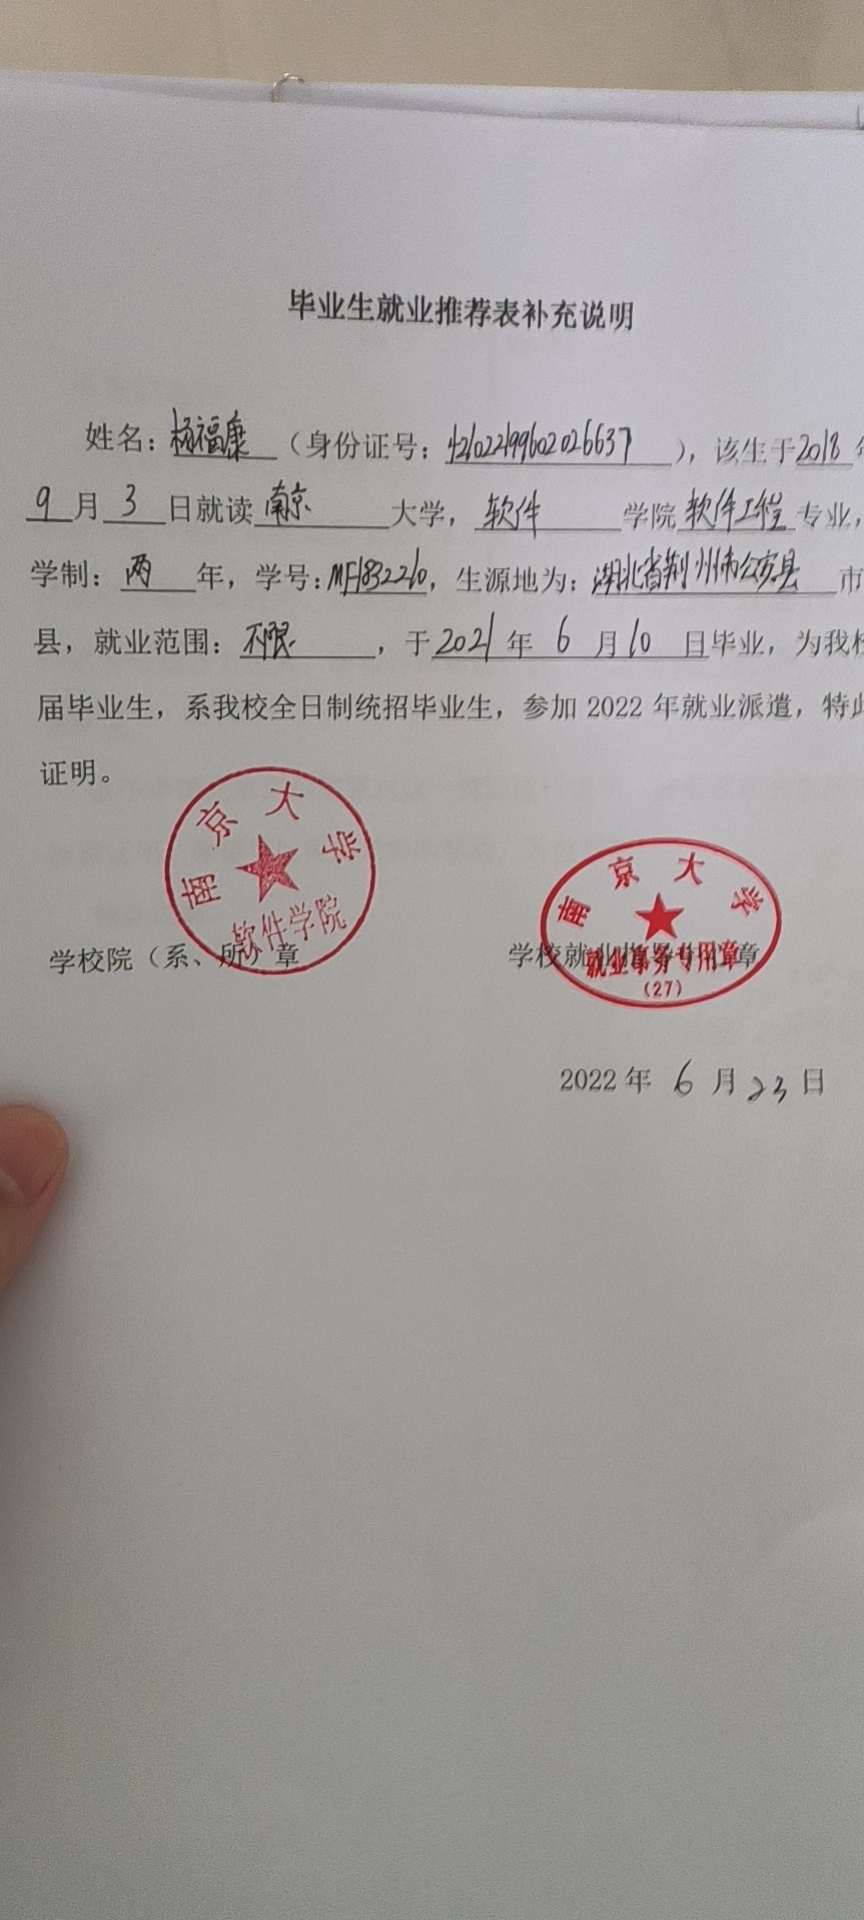 毕业生就业推荐表补充说明
姓名：杨福康（身份证号：421022199602026637），该生于2018年
9月3日就读南京大学，软件学院软件工程专业，
学制：两年，学号：MF1832210，生源地为：湖北省荆州市公安县市
县，就业范围：不限，于2021年6月10日毕业，为我校
届毕业生，系我校全日制统招毕业生，参加2022年就业派遣，特此
证明。
南京大学
软件学院
学校院（系、所）章
南京大学
就业事务专用章
（27）
学校就业指导中心章
2022年6月23日